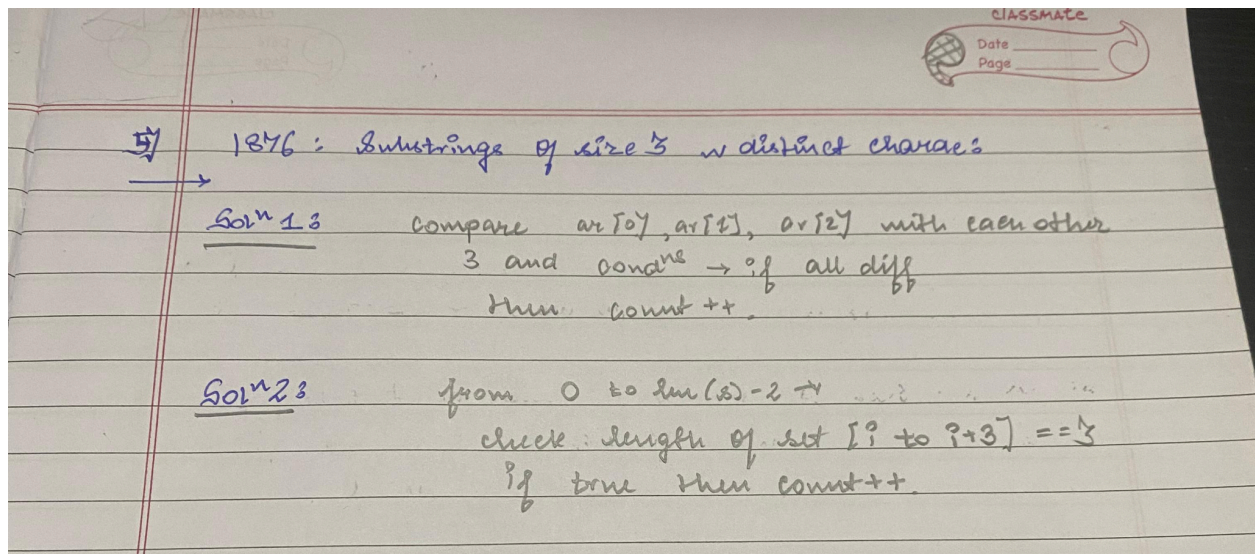 classmate
Date
Page
5] 1876: Substrings of size 3 w distinct charac:
Solⁿ 1: compare ar[0], ar[1], ar[2] with each other
3 and condⁿˢ → if all diff
then count ++.
Solⁿ 2: from 0 to len(s)-2 →
check length of set [i to i+3] ==3
if true then count++.